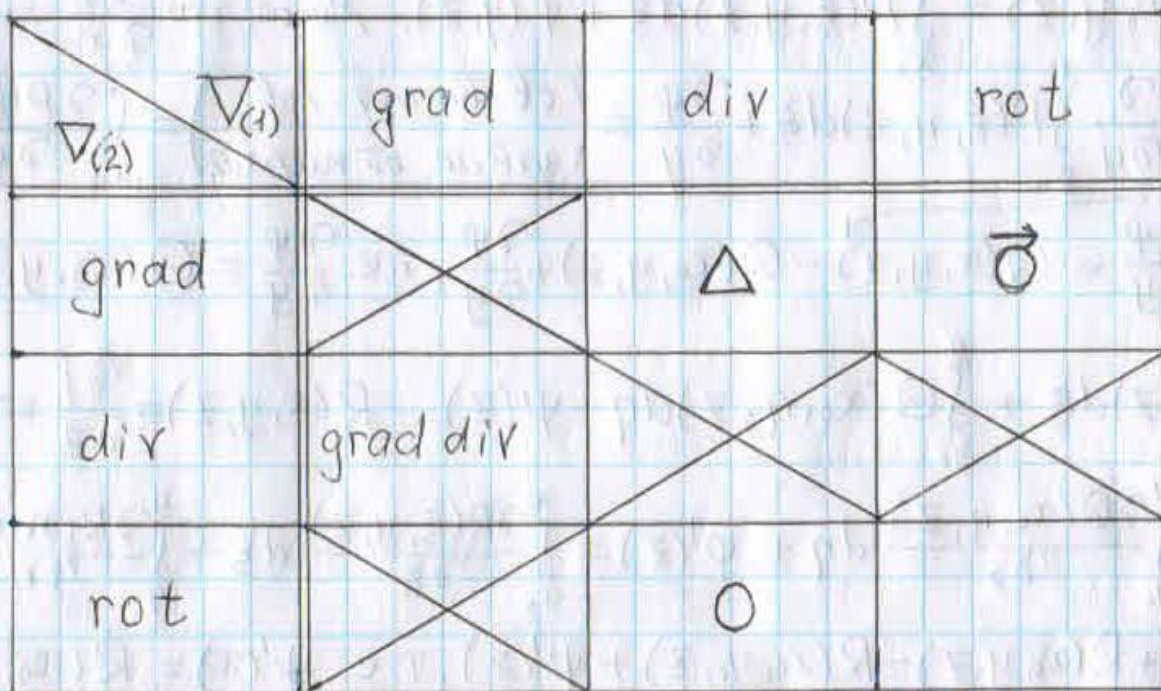 ∇(1) grad div rot
∇(2)
grad Δ \vec{0}
div grad div
rot 0